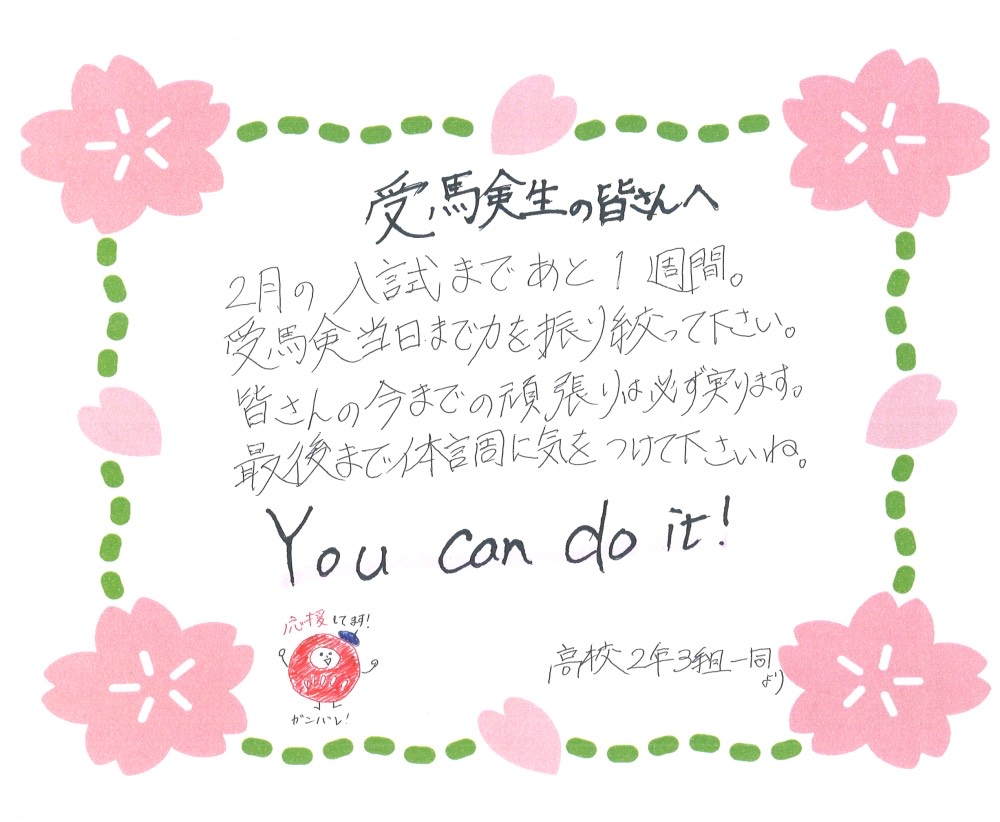 受験生の皆さんへ
2月の入試まであと1週間。
受験当日まで力を振り絞って下さい。
皆さんの今までの頑張りは必ず実ります。
最後まで体調に気をつけて下さいね。
You can do it!
応援してます!
ガンバレ!
高校2年3組一同より